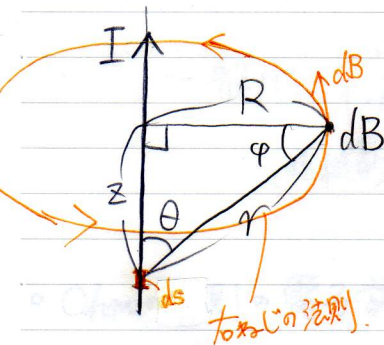 I
dB
R
dB
φ
z
θ
r
ds
右ねじの法則.